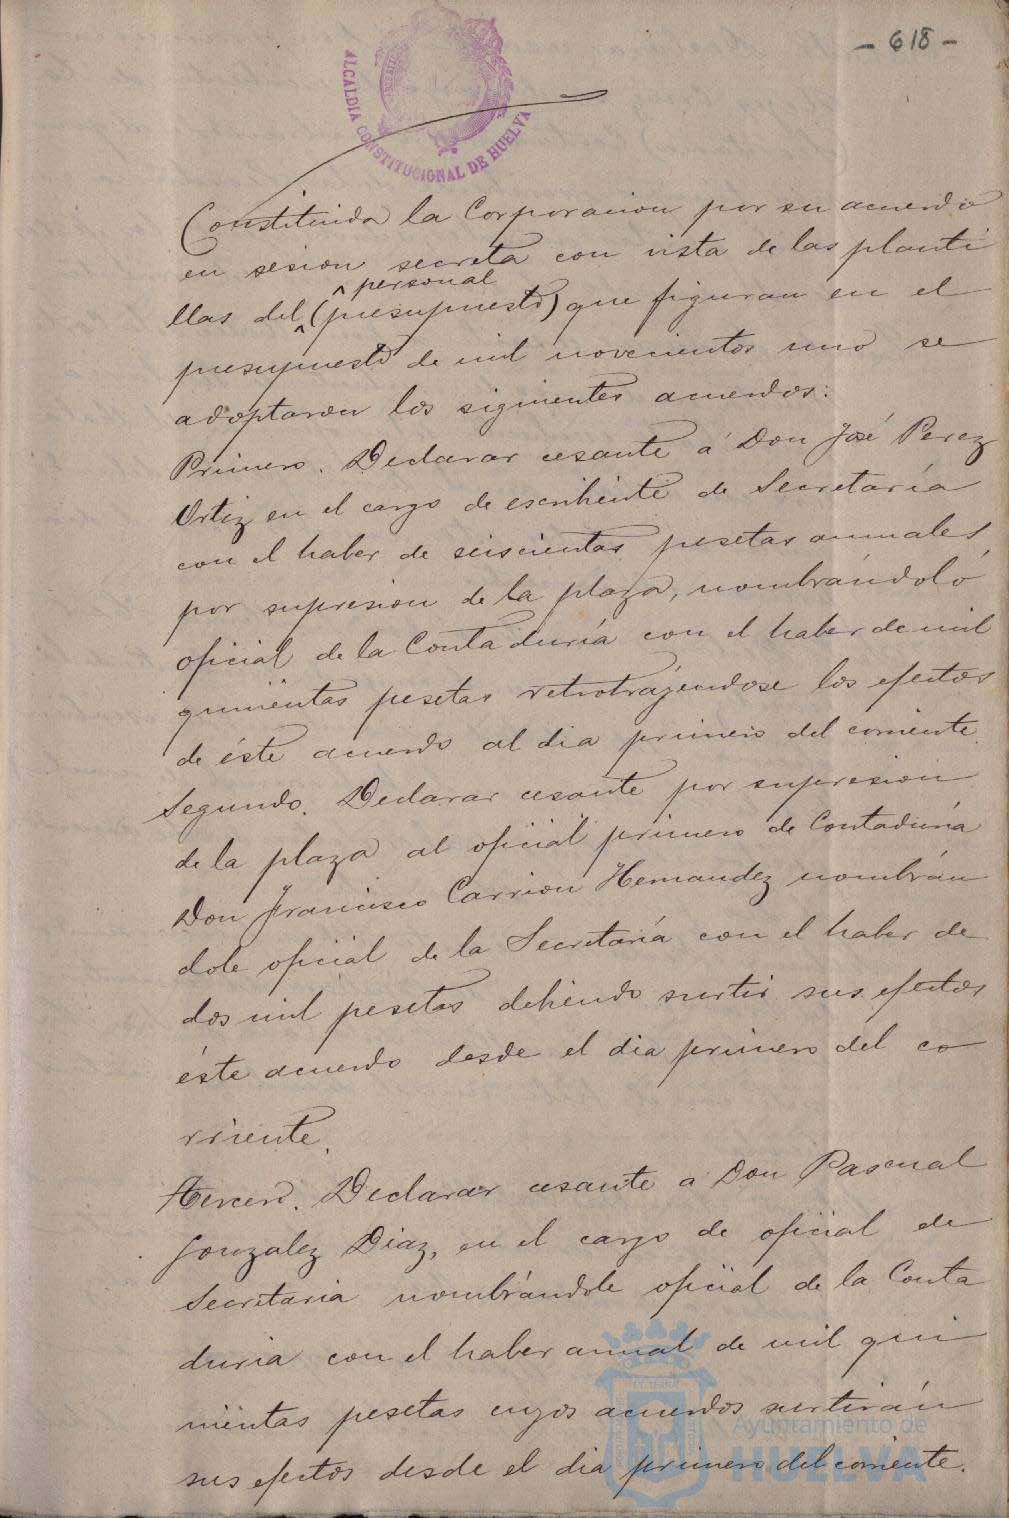 - 618 -
ALCALDIA CONSTITUCIONAL DE HUELVA
Constituida la Corporacion por su acuerdo
en sesion secreta con vista de las planti
personal
llas del (presupuesto) que figuran en el
presupuesto de mil novecientos uno se
adoptaron los siguientes acuerdos:
Primero. Declarar cesante á Don José Perez
Ortiz en el cargo de escribiente de Secretaría
con el haber de seiscientas pesetas anuales
por supresion de la plaza, nombrándolo
oficial de la Contaduría con el haber de mil
quinientas pesetas retrotrajéndose los efectos
de éste acuerdo al dia primero del corriente.
Segundo. Declarar cesante por supresion
de la plaza al oficial primero de Contaduría
Don Francisco Carrion Hernandez nombrán
dole oficial de la Secretaría con el haber de
dos mil pesetas debiendo surtir sus efectos
éste acuerdo desde el dia primero del co
rriente.
Tercero. Declarar cesante a Don Pascual
Gonzalez Diaz, en el cargo de oficial de
Secretaria nombrándole oficial de la Conta
duria con el haber anual de mil qui
nientas pesetas cuyos acuerdos surtirán
sus efectos desde el dia primero del corriente.
Ayuntamiento de
HUELVA